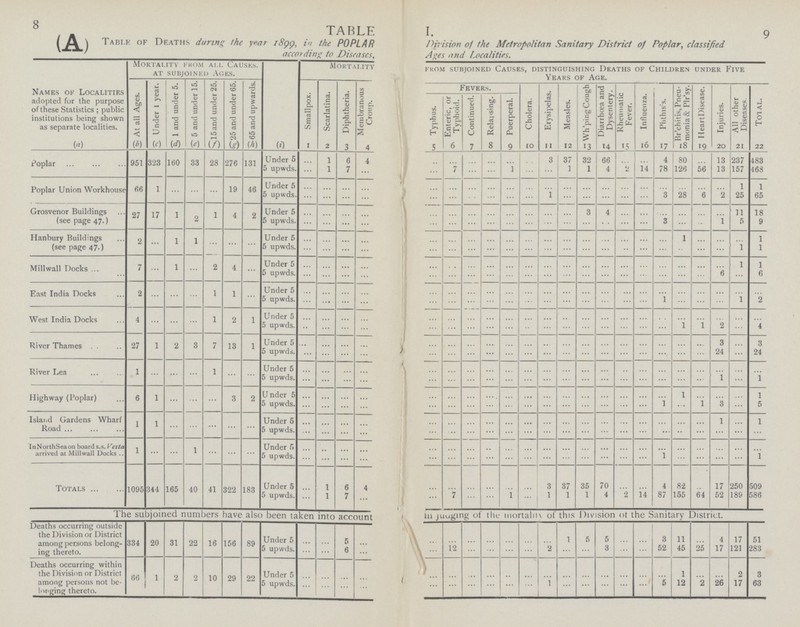 8
TABLE
(A) TABLE OF DEATHS during the year 1899, in the POPLAR
according to Diseases,
I.
9
Division of the Metropolitan Sanitary District of Poplar, classified
Ages and Localities.
NAMES OF LOCALITIES adopted for the purpose of these Statistics; public institutions being shown as separate localities.
MORTALITY FROM ALL CAUSES. AT SUBJOINED AGES.
MORTALITY
FROM SUBJOINED CAUSES, DISTINGUISHING DEATHS OF CHILDREN UNDER FIVE YEARS OF AGE.
FEVERS.
At all Ages. Under 1 year. 1 and under 5. 5 and under 15. 15 and under 25. 25 and under 65. 65 and upwards. Smallpox. Scarlatina. Diphtheria. Membranous Croup. Typhus. Enteric, or Typhoid. Continued. Relapsing. Puerperal. Cholera. Erysipelas. Measles. Wh'ping Cough Diarrhœa and Dysentery. Rheumatic Fever. Influenza. Phthis's. Br'chitis, Pneumonia & Pl'r'sy. Heart Disease. Injuries. All other Diseases TOTAL.
(a) (b) (c) (d) (e) (f) (g) (h) (i) 1 2 3 4 5 6 7 8 9 10 11 12 13 14 15 16 17 18 19 20 21 22
Poplar ... ... ... 951 323 160 33 28 276 131 Under 5 ... 1 6 4 ... ... ... ... ... ... 3 37 32 66 ... ... 4 80 ... 13 237 483
5 upwds. ... 1 7 ... ... 7 ... ... 1 ... ... 1 1 4 2 14 78 126 56 13 157 468
Poplar Union Workhouse 66 1 ... ... ... 19 46 Under 5 ... ... ... ... ... ... ... ... ... ... ... ... ... ... ... ... ... ... ... ... 1 1
5 upwds. ... ... ... ... ... ... ... ... ... ... 1 ... ... ... ... ... 3 28 6 2 25 65
Grosvenor Buildings ... (see page 47.) 27 17 1 2 1 4 2 Under 5 ... ... ... ... ... ... ... ... ... ... ... ... 3 4 ... ... ... ... ... ... 11 18
5 upwds. ... ... ... ... ... ... ... ... ... ... ... ... ... ... ... ... 3 ... ... 1 5 9
Hanbury Buildings ... (see page 47.) 2 ... 1 1 ... ... ... Under 5 ... ... ... ... ... ... ... ... ... ... ... ... ... ... ... ... ... 1 ... ... ... 1
5 upwds. ... ... ... ... ... ... ... ... ... ... ... ... ... ... ... ... ... ... ... ... 1 1
Millwall Docks ... ... 7 ... 1 ... 2 4 ... Under 5 ... ... ... ... ... ... ... ... ... ... ... ... ... ... ... ... ... ... ... ... 1 1
5 upwds. ... ... ... ... ... ... ... ... ... ... ... ... ... ... ... ... ... ... ... 6 ... 6
East India Docks ... 2 ... ... ... 1 1 ... Under 5 ... ... ... ... ... ... ... ... ... ... ... ... ... ... ... ... ... ... ... ... ... ...
5 upwds. ... ... ... ... ... ... ... ... ... ... ... ... ... ... ... ... 1 ... ... ... 1 2
West India Docks ... 4 ... ... ... 1 2 1 Under 5 ... ... ... ... ... ... ... ... ... ... ... ... ... ... ... ... ... ... ... ... ... ...
5 upwds. ... ... ... ... ... ... ... ... ... ... ... ... ... ... ... ... ... 1 1 2 ... 4
River Thames ... ... 27 1 2 3 7 13 1 Under 5 ... ... ... ... ... ... ... ... ... ... ... ... ... ... ... ... ... ... ... 3 ... 3
5 upwds. ... ... ... ... ... ... ... ... ... ... ... ... ... ... ... ... ... ... ... 24 ... 24
River Lea ... ... 1 ... ... ... 1 ... ... Under 5 ... ... ... ... ... ... ... ... ... ... ... ... ... ... ... ... ... ... ... ... ... ...
5 upwds. ... ... ... ... ... ... ... ... ... ... ... ... ... ... ... ... ... ... ... 1 ... 1
Highway (Poplar) ... 6 1 ... ... ... 3 2 Under 5 ... ... ... ... ... ... ... ... ... ... ... ... ... ... ... ... ... 1 ... ... ... 1
5 upwds. ... ... ... ... ... ... ... ... ... ... ... ... ... ... ... ... 1 ... 1 3 ... 5
Island Gardens Wharf Road ... ... ... 1 1 ... ... ... ... ... Under 5 ... ... ... ... ... ... ... ... ... ... ... ... ... ... ... ... ... ... ... 1 ... 1
5 upwds. ... ... ... ... ... ... ... ... ... ... ... ... ... ... ... ... ... ... ... ... ... ...
In North Sea on board s.s. Vesta arrived at Millwall Docks .. 1 ... ... 1 ... ... ... Under 5 ... ... ... ... ... ... ... ... ... ... ... ... ... ... ... ... ... ... ... ... ... ...
5 upwds. ... ... ... ... ... ... ... ... ... ... ... ... ... ... ... ... 1 ... ... ... ... 1
TOTALS ... ... 1095 344 165 40 41 322 183 Under 5 ... 1 6 4 ... ... ... ... ... ... 3 37 35 70 ... ... 4 82 ... 17 250 509
5 upwds. ... 1 7 ... ... 7 ... ... 1 ... 1 1 1 4 2 14 87 155 64 52 189 586
The subjoined numbers have also been taken into account in judging of the mortality of this Division of the Sanitary District.
Deaths occurring outside the Division or District among persons belonging thereto. 334 20 31 22 16 156 89 Under 5 ... ... 5 ... ... ... ... ... ... ... ... 1 5 5 ... ... 3 11 ... 4 17 51
5 upwds. ... ... 6 ... ... 12 ... ... ... ... 2 ... ... 3 ... ... 52 45 25 17 121 283
Deaths occurring within the Division or District among persons not belonging thereto. 66 1 2 2 10 29 22 Under 5 ... ... ... ... ... ... ... ... ... ... ... ... ... ... ... ... ... 1 ... ... 2 3
5 upwds. ... ... ... ... ... ... ... ... ... ... 1 ... ... ... ... ... 5 12 2 26 17 63